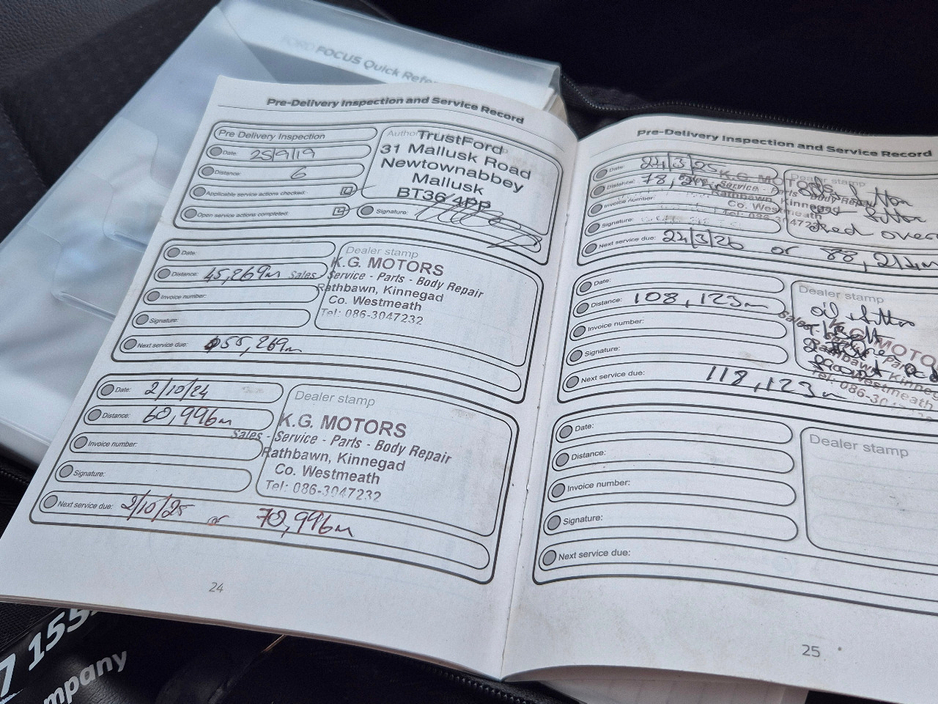 FORD FOCUS Quick Refe
Pre-Delivery Inspection and Service Record
Pre Delivery Inspection
Date: 25/9/19
Distance: 6
Applicable service actions checked:
Open service actions completed:
TrustFord
31 Mallusk Road
Newtownabbey
Mallusk
BT36 4PP
Signature:
Date:
Distance: 45,269m
Invoice number:
Signature:
Next service due: 55,269m
Dealer stamp
K.G. MOTORS
Sales - Service - Parts - Body Repair
Rathbawn, Kinnegad
Co. Westmeath
Tel: 086-3047232
Date: 2/10/24
Distance: 60,996m
Invoice number:
Signature:
Next service due: 2/10/25 or 70,996m
Dealer stamp
K.G. MOTORS
Sales - Service - Parts - Body Repair
Rathbawn, Kinnegad
Co. Westmeath
Tel: 086-3047232
24
Pre-Delivery Inspection and Service Record
Date: 24/3/25
Distance: 78,
Invoice number:
Signature:
Next service due: 24/3/26 or 88,214m
Dealer stamp
K.G. MOTORS
Service - Parts - Body Repair
Rathbawn, Kinnegad
Co. Westmeath
Tel:
Date:
Distance: 108,123m
Invoice number:
Signature:
Next service due: 118,123m
Dealer stamp
oil filter
Westmeath
Tel: 086-30
Date:
Distance:
Invoice number:
Signature:
Next service due:
Dealer stamp
25
7 155
mpany